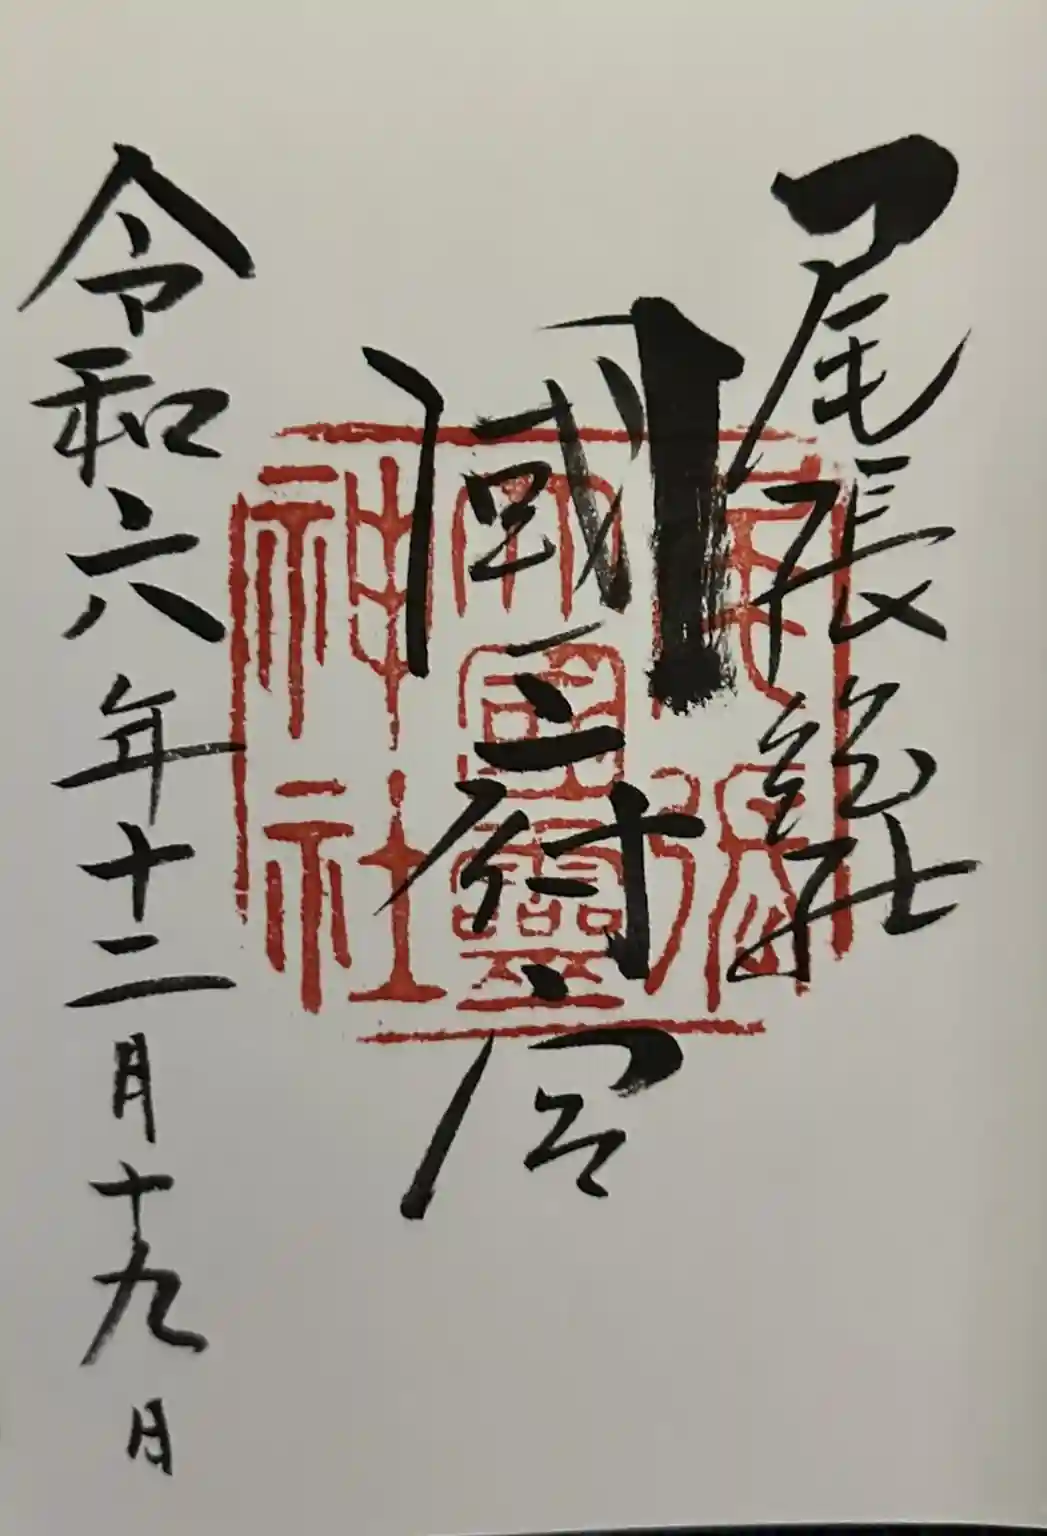 尾張總社
國府宮
令和六年十二月十九日
尾張
大國霊
神社